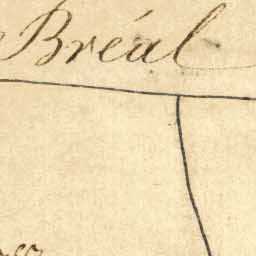 Bréal